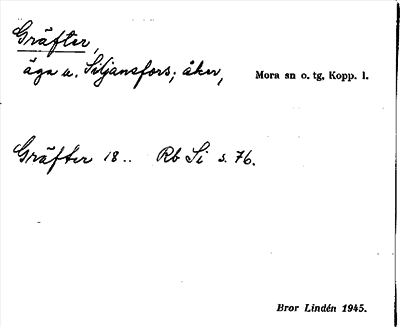 Gräfter,
äga u. Siljansfors; åker, Mora sn o. tg, Kopp. l.
Gräfter 18.. Rb Si s. 76.
Bror Lindén 1945.